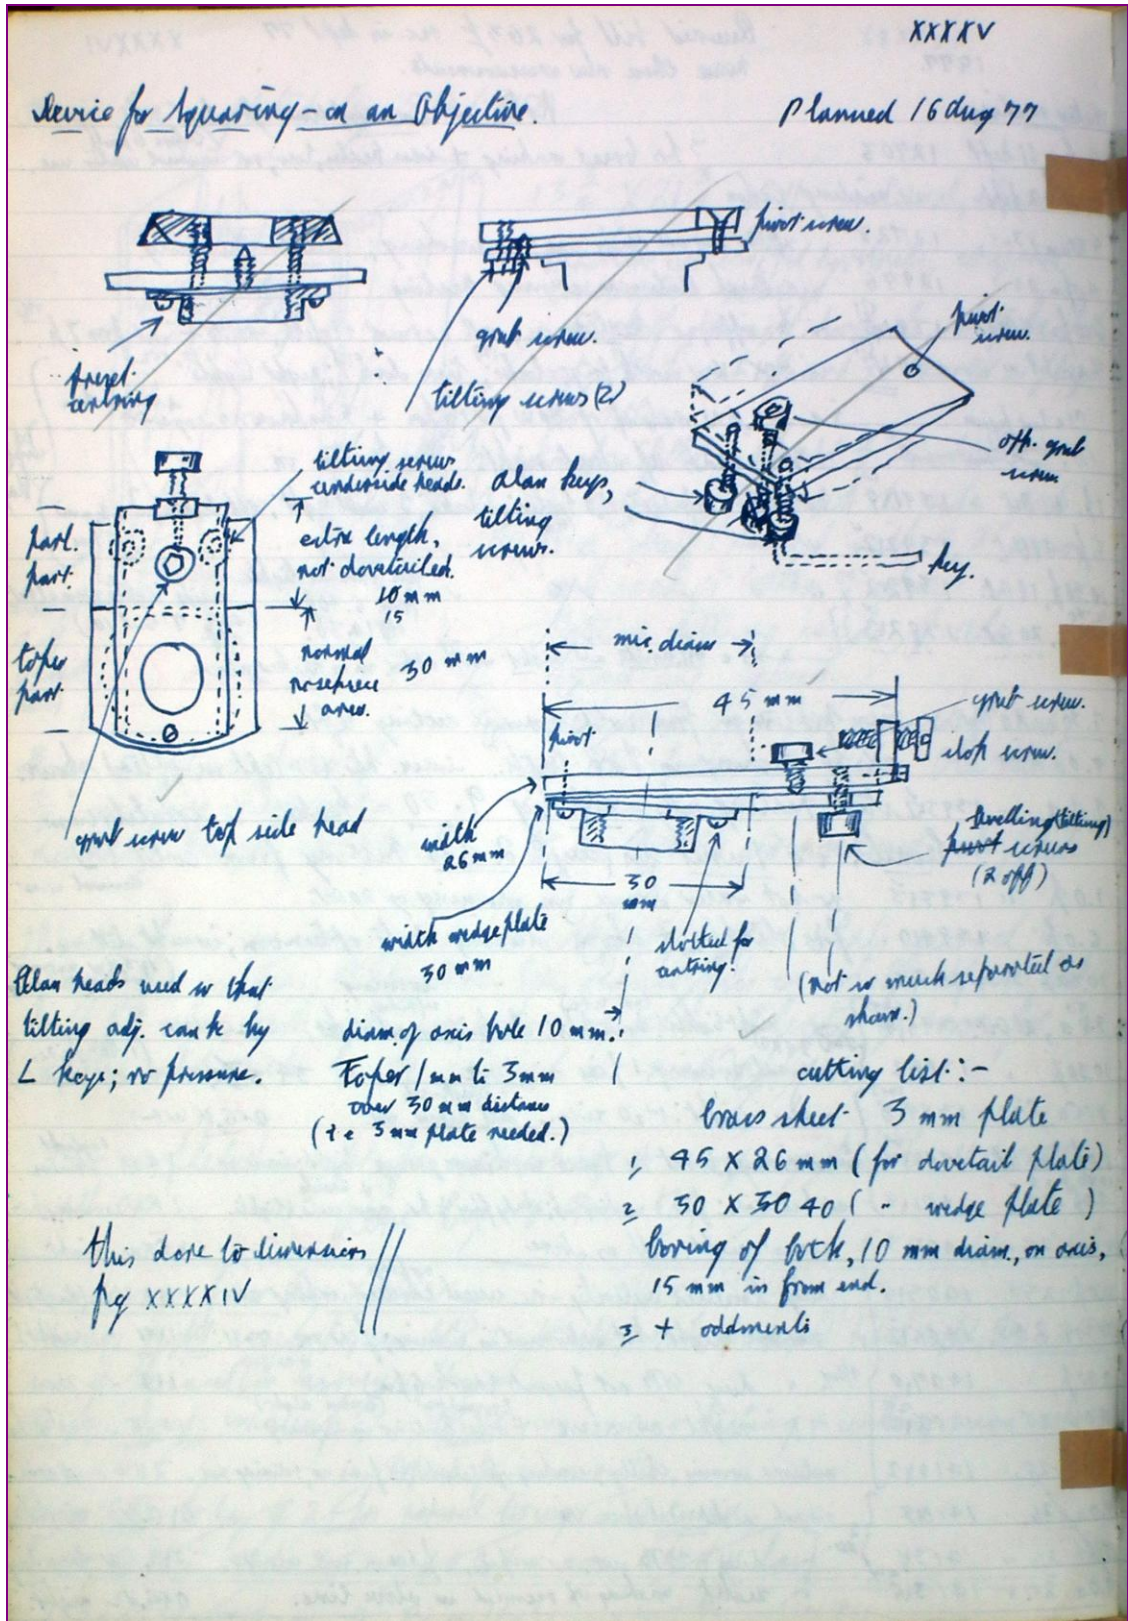 XXXXV
Device for Squaring-on an Objective.
Planned 16 Aug 77
pivot screw.
grub screw.
preset
centring
tilting screws (2)
pivot
screw.
opp. grub
screw.
Alan keys,
tilting
screws.
key.
tilting screws
underside heads.
extra length,
not dovetailed.
10 mm
15
part.
part.
normal
nosepiece
area.
30 mm
taper
part.
grub screw top side head
mic. diam
45 mm
grub screw.
stop screw.
pivot
width
26 mm
Levelling (tilting)
pivot screws
(2 off)
30
mm
width wedge plate
30 mm
slotted for
centring.
(not so much separated as
shown.)
Alan heads used so that
tilting adj. can be by
L keys; no pressure.
diam. of axis hole 10 mm.
Taper 1 mm to 3 mm
over 30 mm distance
(i e 3 mm plate needed.)
cutting list :-
brass sheet 3 mm plate
1, 45 X 26 mm (for dovetail plate)
2 30 X 30 40 ( " wedge plate )
boring of both, 10 mm diam., on axis,
15 mm in from end.
3 + oddments
this done to dimensions
pg XXXXIV